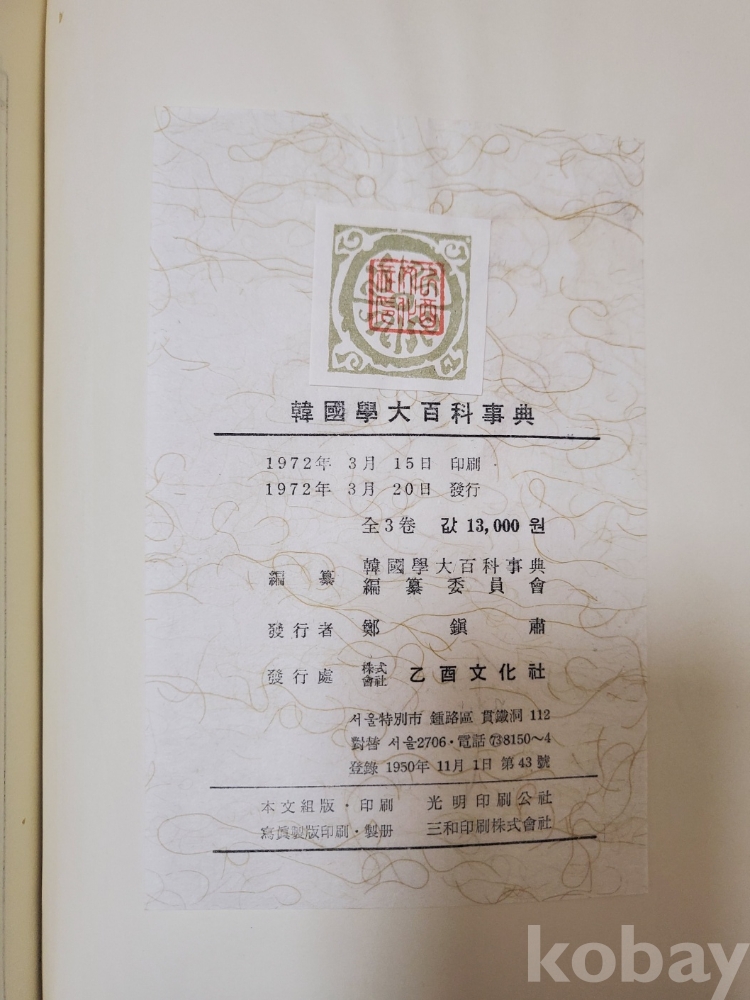 韓國學大百科事典
1972年 3月 15日 印刷
1972年 3月 20日 發行
全3卷 값 13,000 원
編纂 韓國學大百科事典
編纂委員會
發行者 鄭鎭肅
發行處 株式會社 乙酉文化社
서울特別市 鍾路區 貫鐵洞 112
對替 서울2706・電話 ㉓8150～4
登錄 1950年 11月 1日 第43號
本文組版・印刷 光明印刷公社
寫眞製版印刷・製册 三和印刷株式會社
kobay